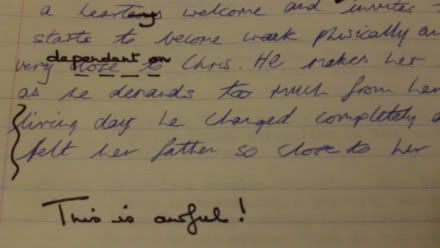 a hearty welcome and invites
starts to become weak phisically an
dependent on
very close to Chris. He makes her
as he demands too much from her
living day he changed completely
felt her father so close to her
This is awful!